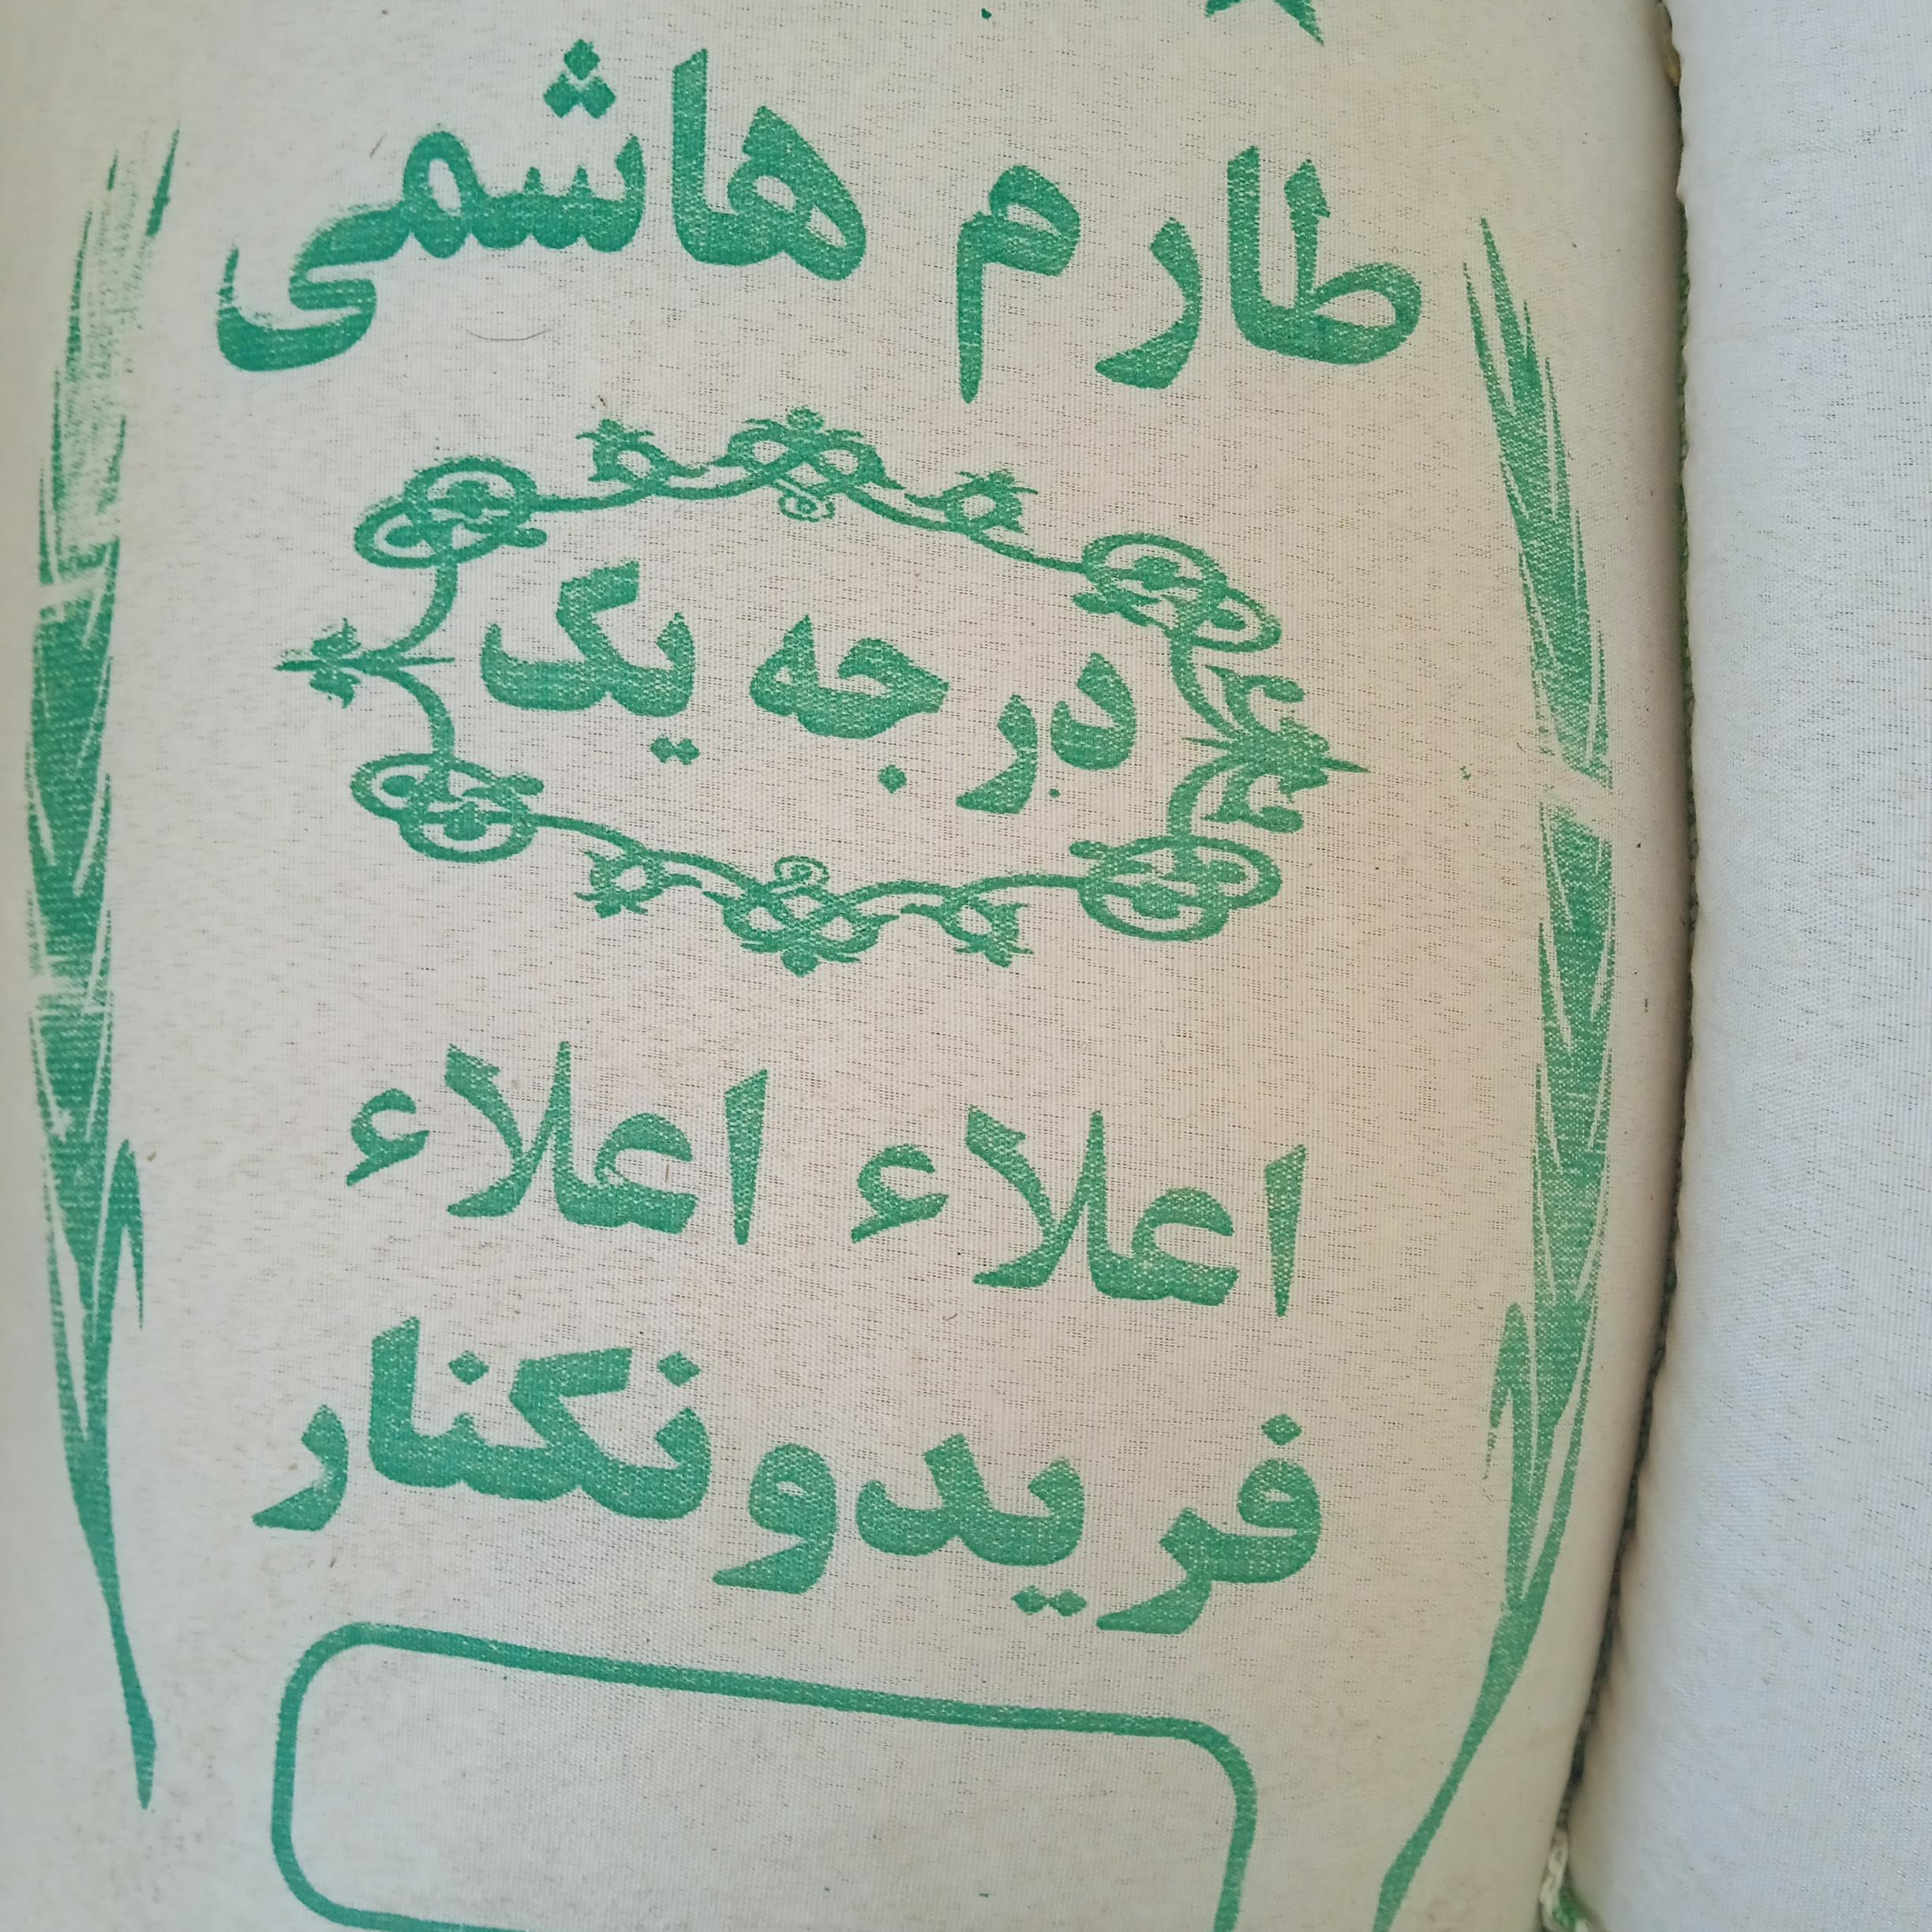 طارم هاشمی
درجه یک
اعلاء اعلاء
فریدونکنار